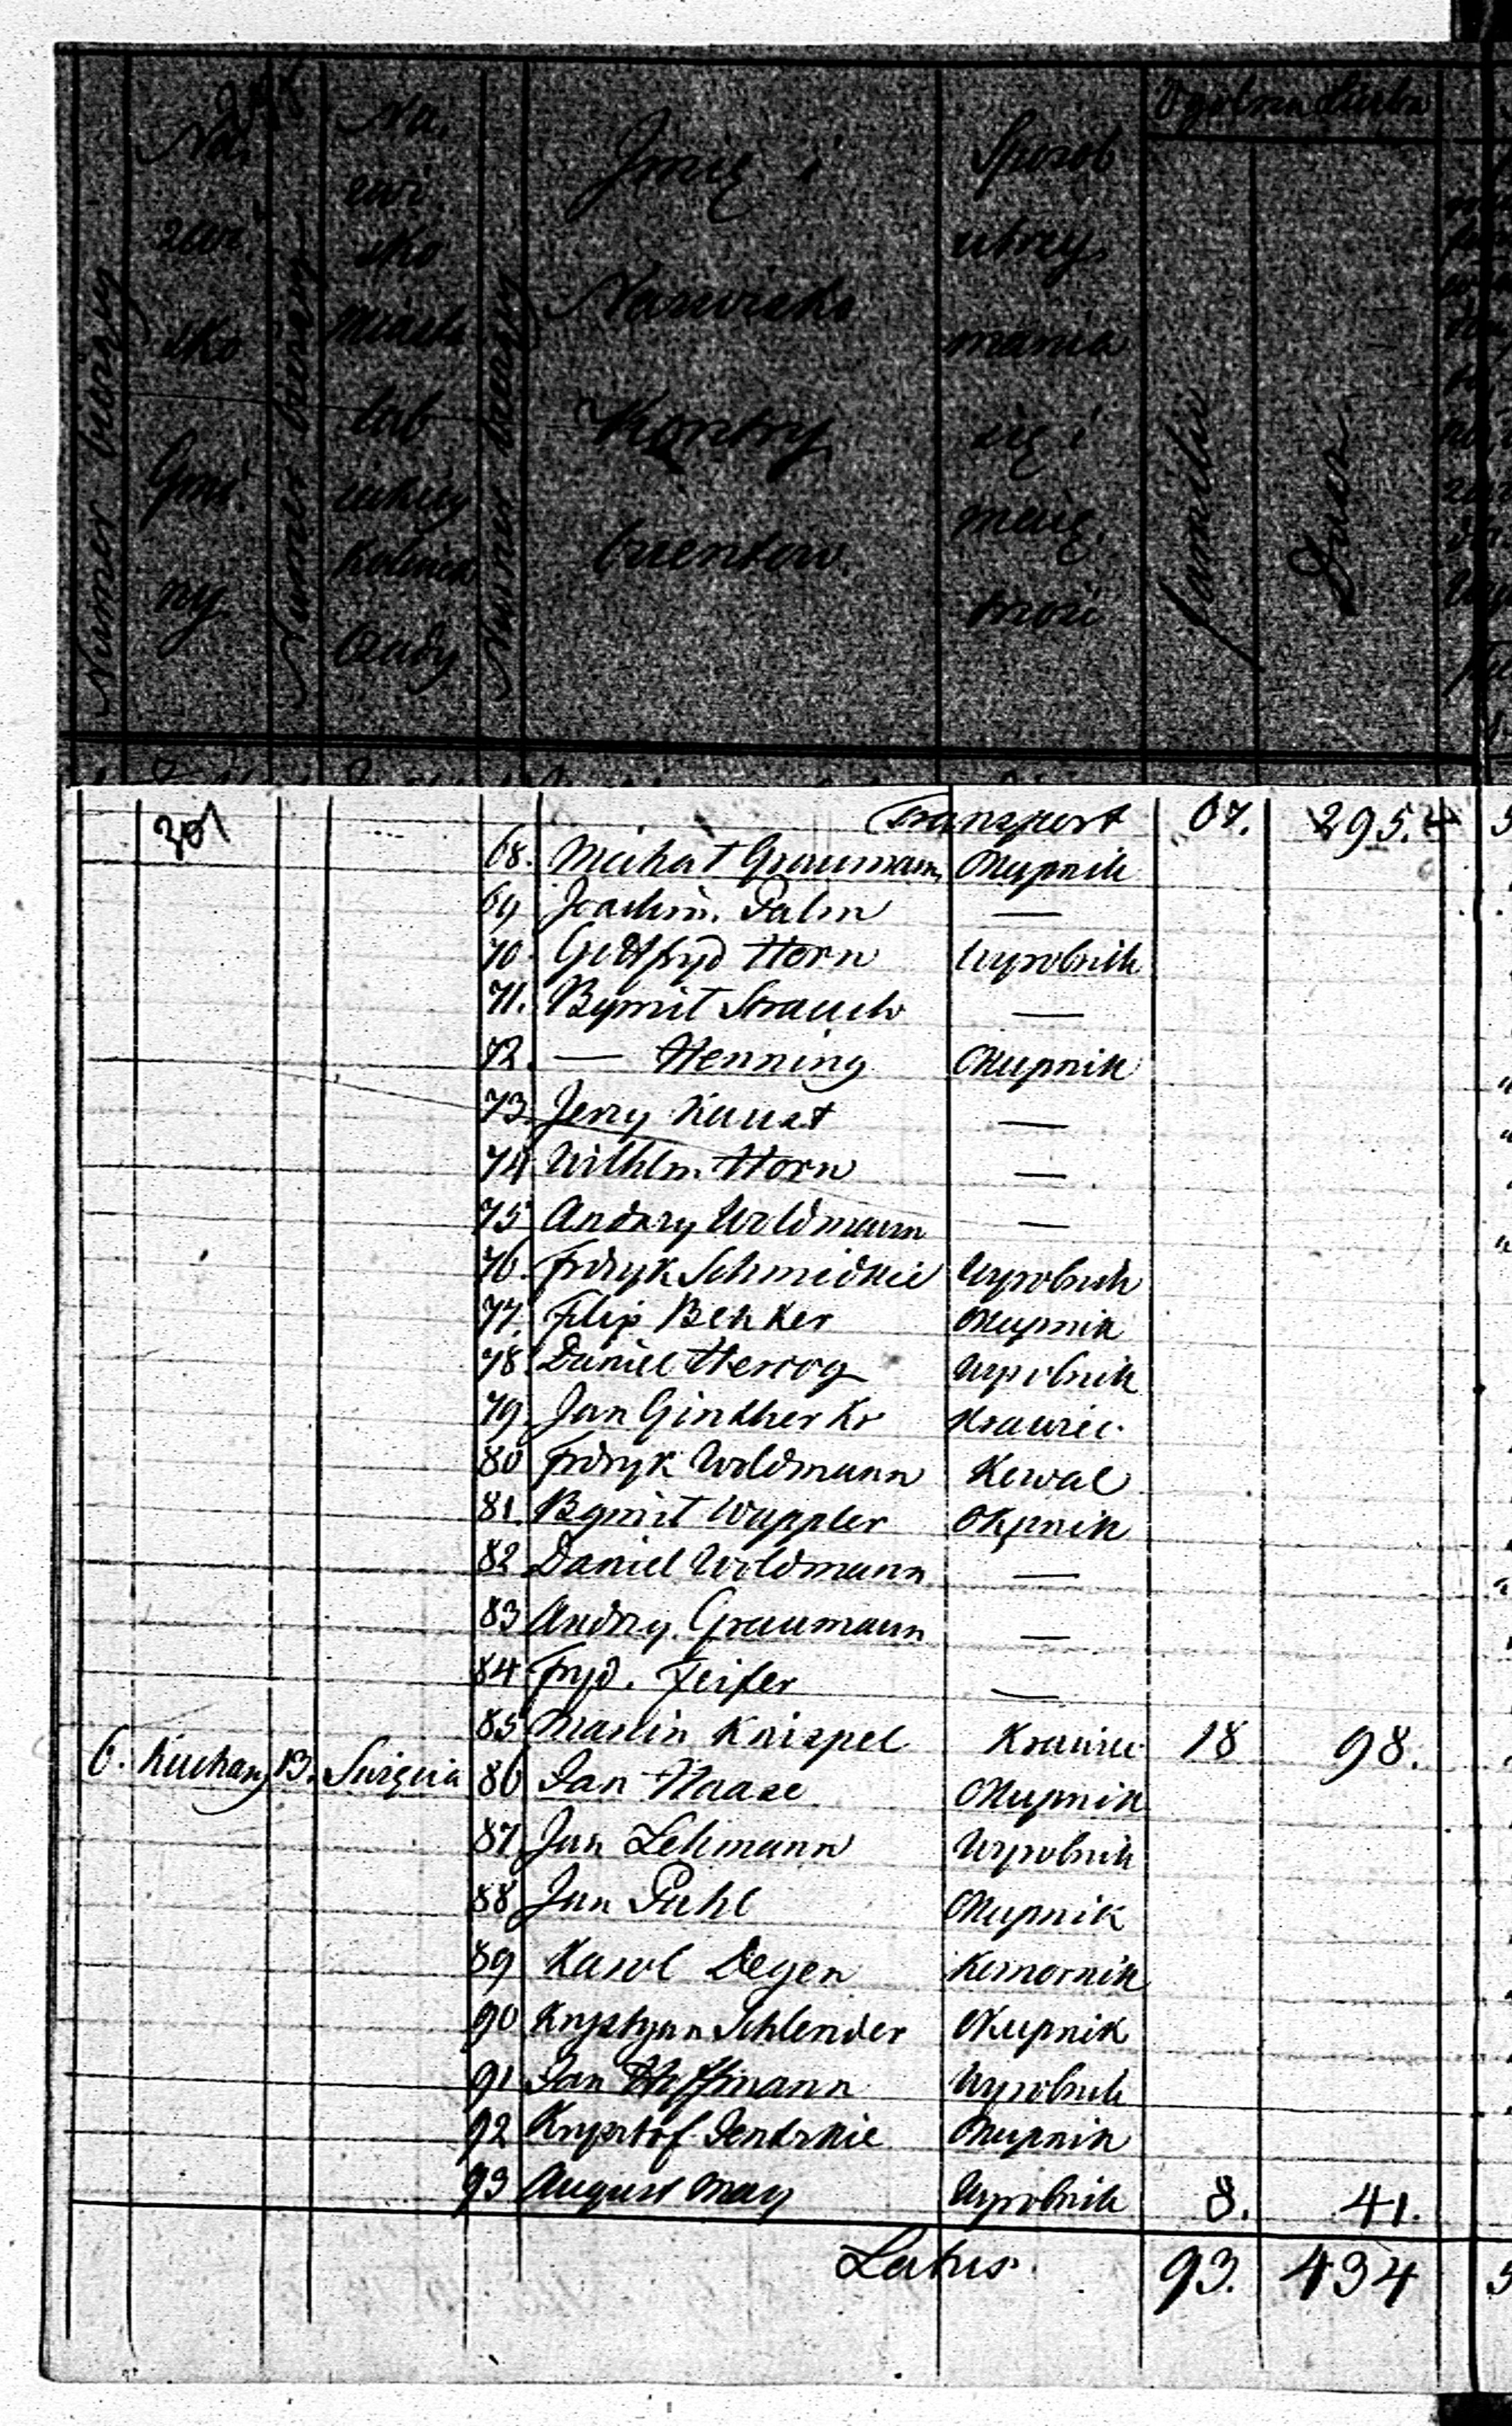 Numer bieżący
Nazwisko Gminy
Numer bieżący
Nazwisko Miasta lub
Osady
Numer bieżący
Jmię i
Nazwisko
Sposob utrzymania się i
Ogólna liczba
familii
Dusz
201
Transport 67. 295.
68. Michał Graumann Okupnik
69 Joachim Palm —
70. Gottfryd Horn Wyrobnik
71. Bgmił Strauch —
72. — Henning Okupnik
73 Jerzy Kunst —
74 Wilhlm Horn —
75 Andrzy Woldmann —
76. Frdryk Schmidkie Wyrobnik
77. Filip Bekker Okupnik
78. Daniel Herzog Wyrobnik
79. Jan Gindher Kr Krawiec
80 Frdryk Woldmann Kowal
81. Bgmił Wappler Okpnik
82 Daniel Woldmann —
83 Andrzy Graumann —
84 Fryd. Feifer —
85 Marcin Knispel Krawiec 18 98.
6. Kuchary 13. Święcia 86 Jan Haase Okupnik
87. Jan Lehmann Wyrobnik
88 Jan Pahl Okupnik
89 Karol Degen Komornik
90 Krystyan Schlender Okupnik
91 Jan Hoffmann Wyrobnik
92 Krysztof Jendrkie Okupnik
93 August May Wyrobnik 8. 41.
Latus. 93. 434